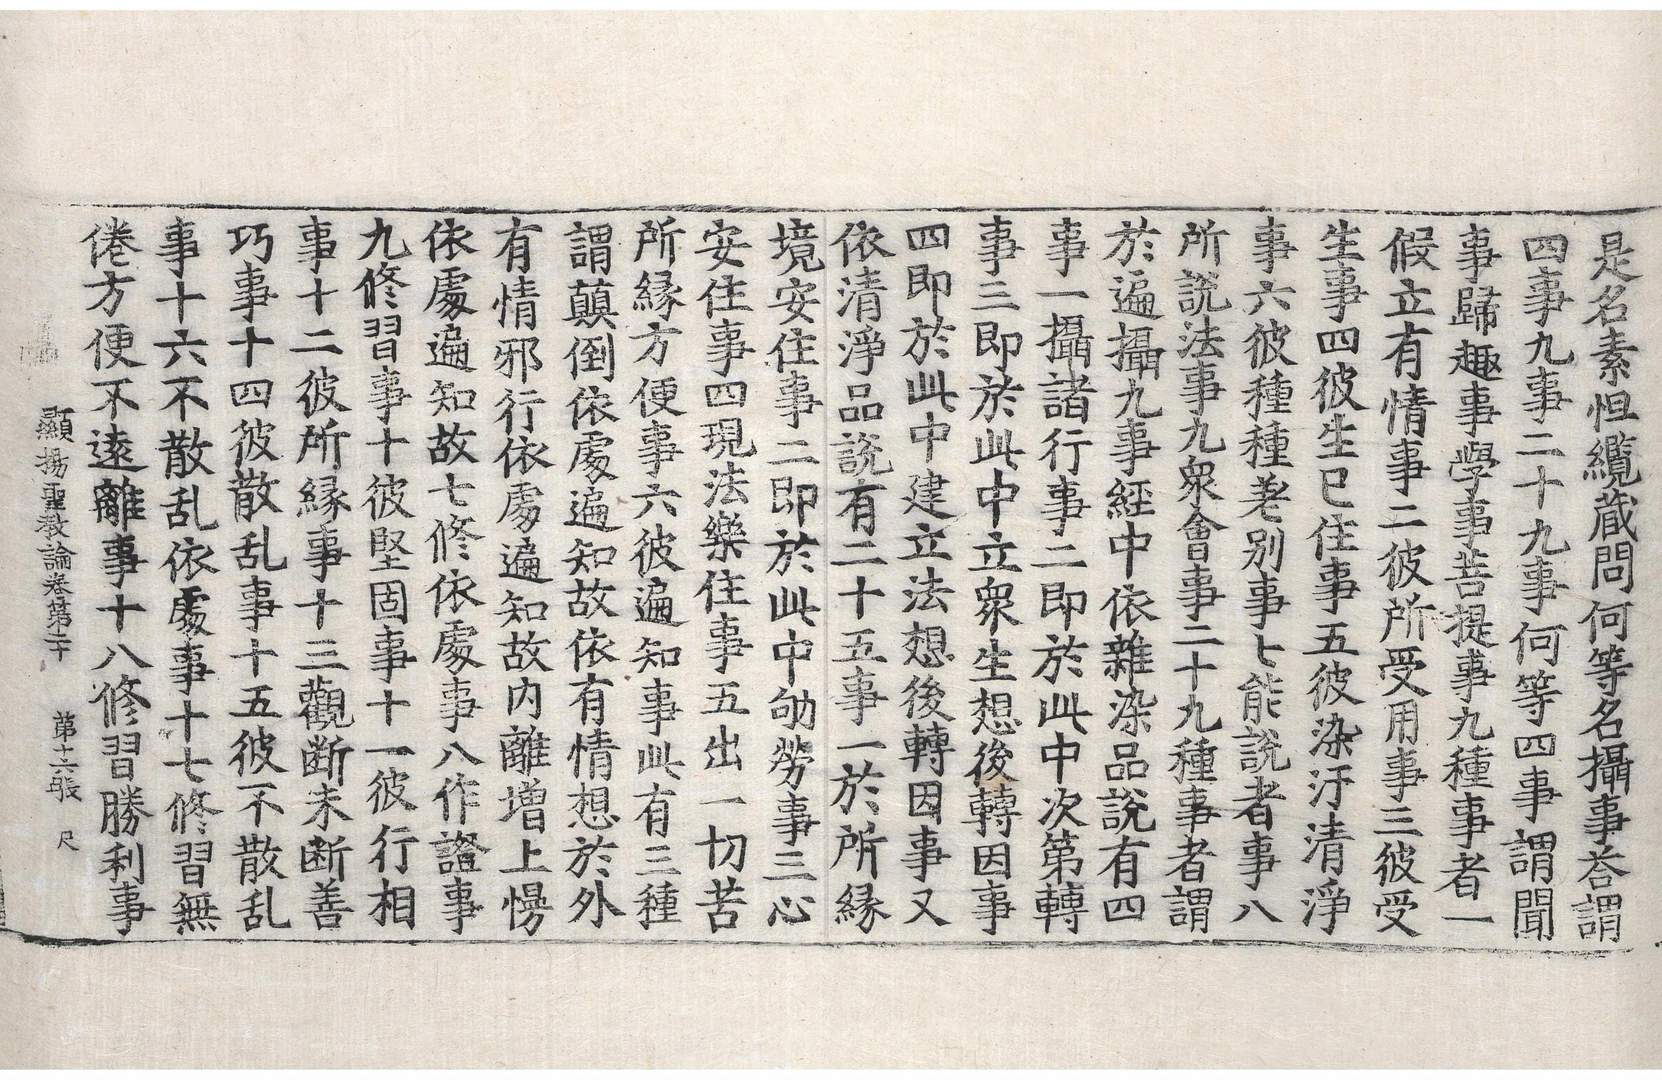 是名素怛纜蔵問何等名攝事荅謂
四事九事二十九事何等四事謂聞
事歸趣事學事菩提事九種事者一
假立有情事二彼所受用事三彼受
生事四彼生已住事五彼染汙清淨
事六彼種種差别事七能說者事八
所說法事九衆會事二十九種事者謂
於遍攝九事經中依雜染品說有四
事一攝諸行事二即於此中次第轉
事三即於此中立衆生想後轉因事
四即於此中建立法想後轉因事又
依清淨品說有二十五事一於所縁
境安住事二即於此中劬勞事三心
安住事四現法樂住事五出一切苦
所縁方便事六彼遍知事此有三種
謂顛倒依處遍知故依有情想於外
有情邪行依處遍知故内離增上慢
依處遍知故七修依處事八作證事
九修習事十彼堅固事十一彼行相
事十二彼所縁事十三觀断未断善
巧事十四彼散乱事十五彼不散乱
事十六不散乱依處事十七修習無
倦方便不遠離事十八修習勝利事
顯揚聖教論卷第二十 第十六張 尺